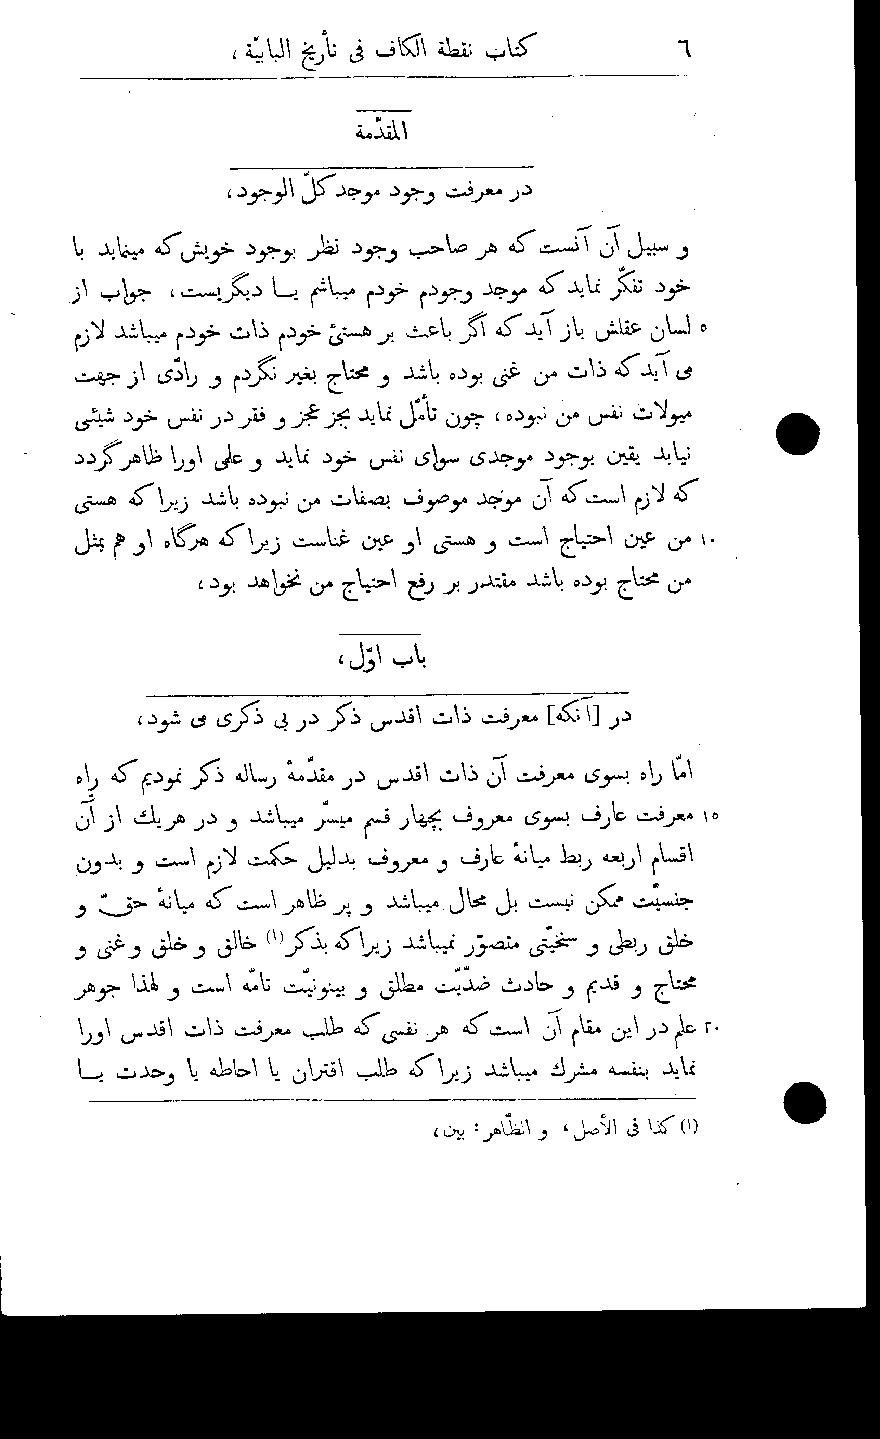 ٦ كتاب نقطة الكاف فى تأريخ البابيّة ،
المقدّمة
در معرفت وجود موجد كلّ الوجود،
و سبيل آن آنست كه هر صاحب وجود نظر بوجود خويش كه مينمايد با
خود تفكّر نمايد كه موجد وجودم خودم ميباشم يا ديگريست، جواب از
٥ لسان عقلش باز آيد كه اگر باعث بر هستئ خودم ذات خودم ميباشد لازم
مى آيد كه ذات من غنى بوده باشد و محتاج بغير نگردم و رادّى از جهت
ميولات نفس من نبوده، چون تأمّل نمايد بجز عجز و فقر در نفس خود شيئى
نيابد يقين بوجود موجدى سواى نفس خود نمايد و على اورا ظاهر گردد
كه لازم است كه آن موجد موصوف بصفات من نبوده باشد زيرا كه هستى
١٠ من عين احتياج است و هستى او عين غناست زيرا كه هرگاه او هم بمثل
من محتاج بوده باشد مقتدر بر رفع احتياج من نخواهد بود،
باب اوّل،
در [آنكه] معرفت ذات اقدس ذكر در بى ذكرى مى شود،
امّا راه بسوى معرفت آن ذات اقدس در مقدّمهٔ رساله ذكر نموديم كه راه
١٥ معرفت عارف بسوى معروف بچهار قسم ميسّر ميباشد و در هر يك از آن
اقسام اربعه ربط ميانهٔ عارف و معروف بدليل حكمت لازم است و بدون
جنسيّت ممكن نيست بل محال ميباشد و پر ظاهر است كه ميانهٔ حقّ و
خلق ربطى و سنخيّتى متصوّر نميباشد زيرا كه بذكر (١) خالق و خلق و غنى و
محتاج و قديم و حادث ضدّيّت مطلق و بينونيّت تامّه است و لهذا جوهر
٢٠ علم در اين مقام آن است كه هر نفسى كه طلب معرفت ذات اقدس اورا
نمايد بنفسه مشرك ميباشد زيرا كه طلب اقتران يا احاطه يا وحدت يا
(١) كذا فى الأصل، و الظّاهر: بين،